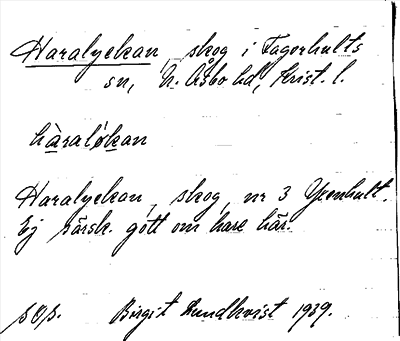 Haralyckan, skog i Fagerhults
sn, N. Åsbo hd, Krist. l.
hàraløkan
Haralyckan, skog, nr 3 Yxenhult.
Ej särsk. gott om hare här.
Birgit Lundkvist 1939.